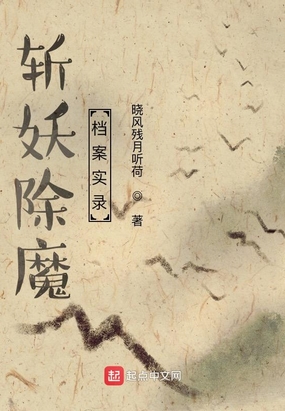 斩妖除魔
档案实录
晓风残月听荷◎著
起 起点中文网